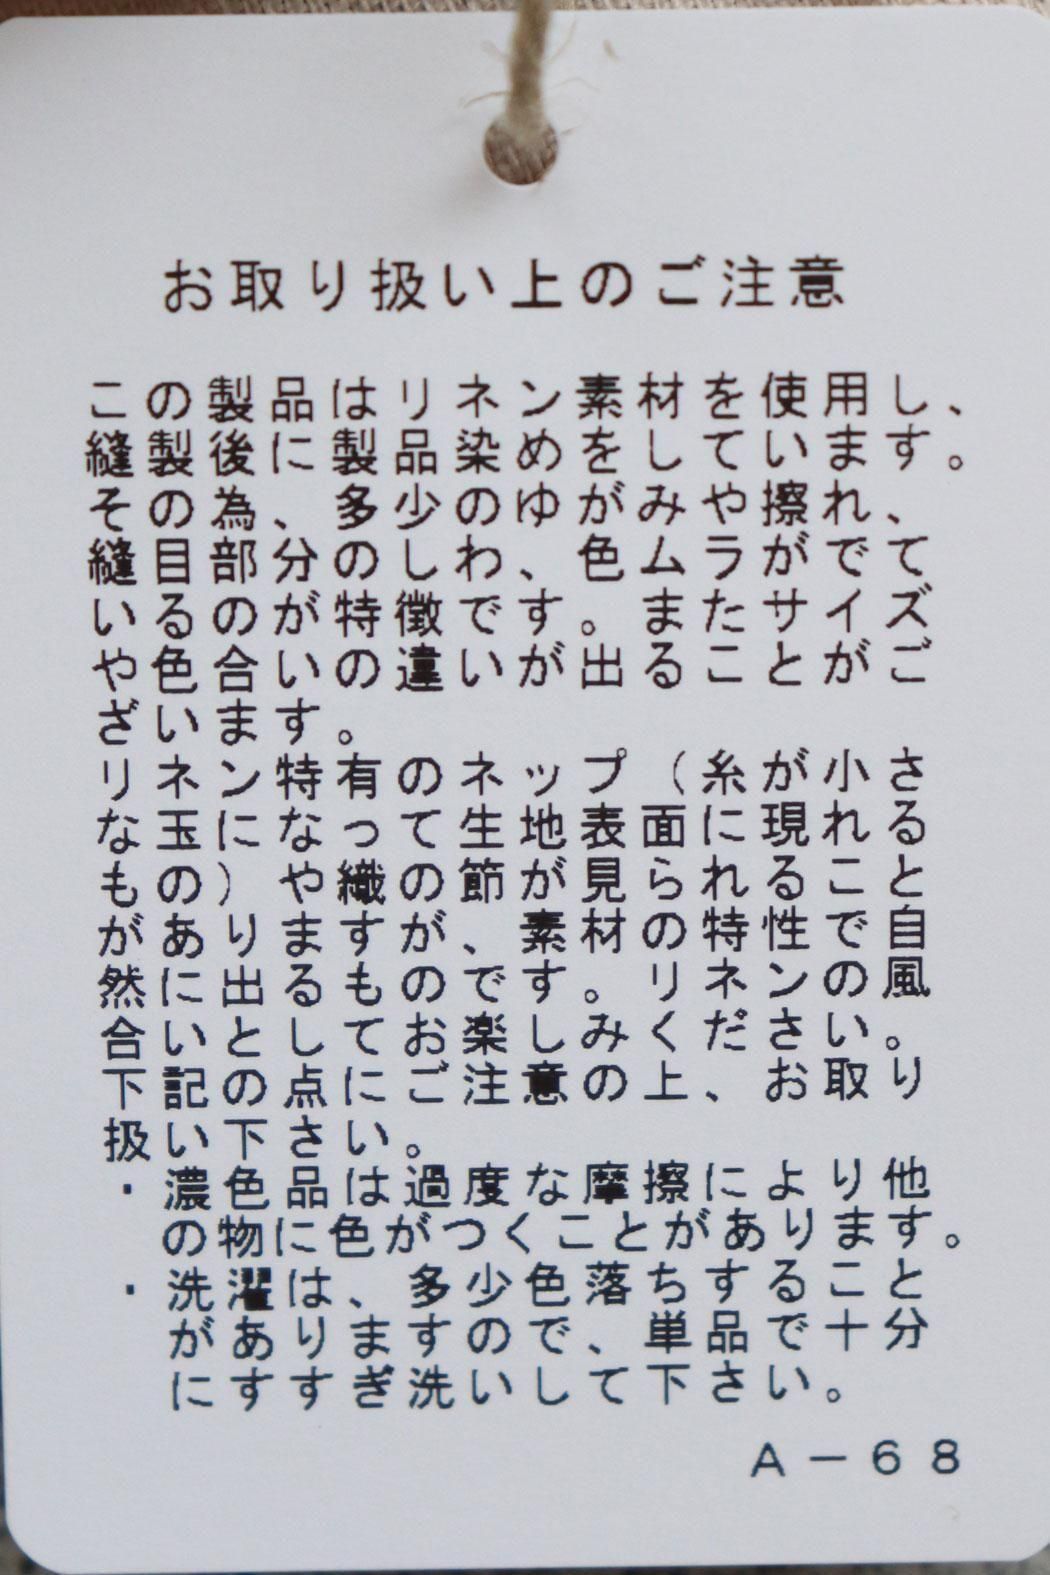 お取り扱い上のご注意
この製品はリネン素材を使用し、
縫製後に製品染めをしています。
その為、多少のゆがみや擦れ、
縫目部分のしわ、色ムラがでて
いるのが特徴です。またサイズ
や色合いの違いが出ることがご
ざいます。
リネン特有のネップ（糸が小さ
な玉になって生地表面に現れる
もの）や織の節が見られること
がありますが、素材の特性で自
然に出るものです。リネンの風
合いとしてお楽しみください。
下記の点にご注意の上、お取り
扱い下さい。
・濃色品は過度な摩擦により他
の物に色がつくことがあります。
・洗濯は、多少色落ちすること
がありますので、単品で十分
にすすぎ洗いして下さい。
A－68